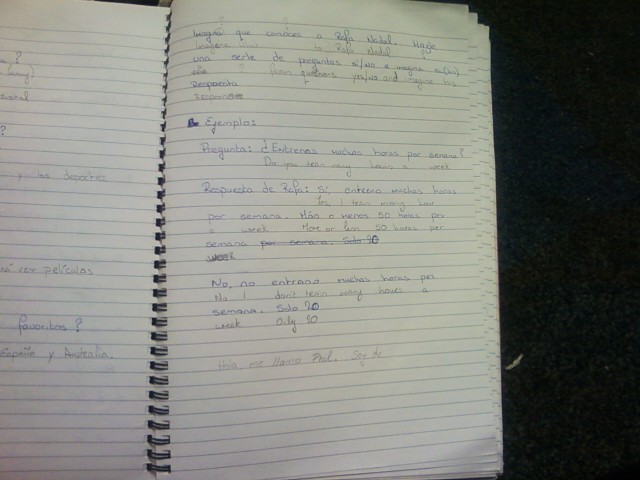 ? 
sional
?
y los deportes
ver películas
favoritos?
España y Australia.
Imagina que conoces a Rafa Nadal. Haga
to Rafa Nadal
una serie de preguntas sí/no e imagina su(s)
questions yes/no and imagine his
Respuesta
Ejemplo:
Pregunta: ¿Entrenas muchas horas por semana?
Do you train many hours a week
Respuesta de Rafa: Sí, entreno muchas horas
Yes, I train many hour
por semana. Más o menos 50 horas per
a week More or less 50 horas per
semana por semana. Solo 20
week
No, no entreno muchas horas per
No I don't train many hours a
semana. Solo 20
week Only 20
Hola, me llamo Paul. Soy de